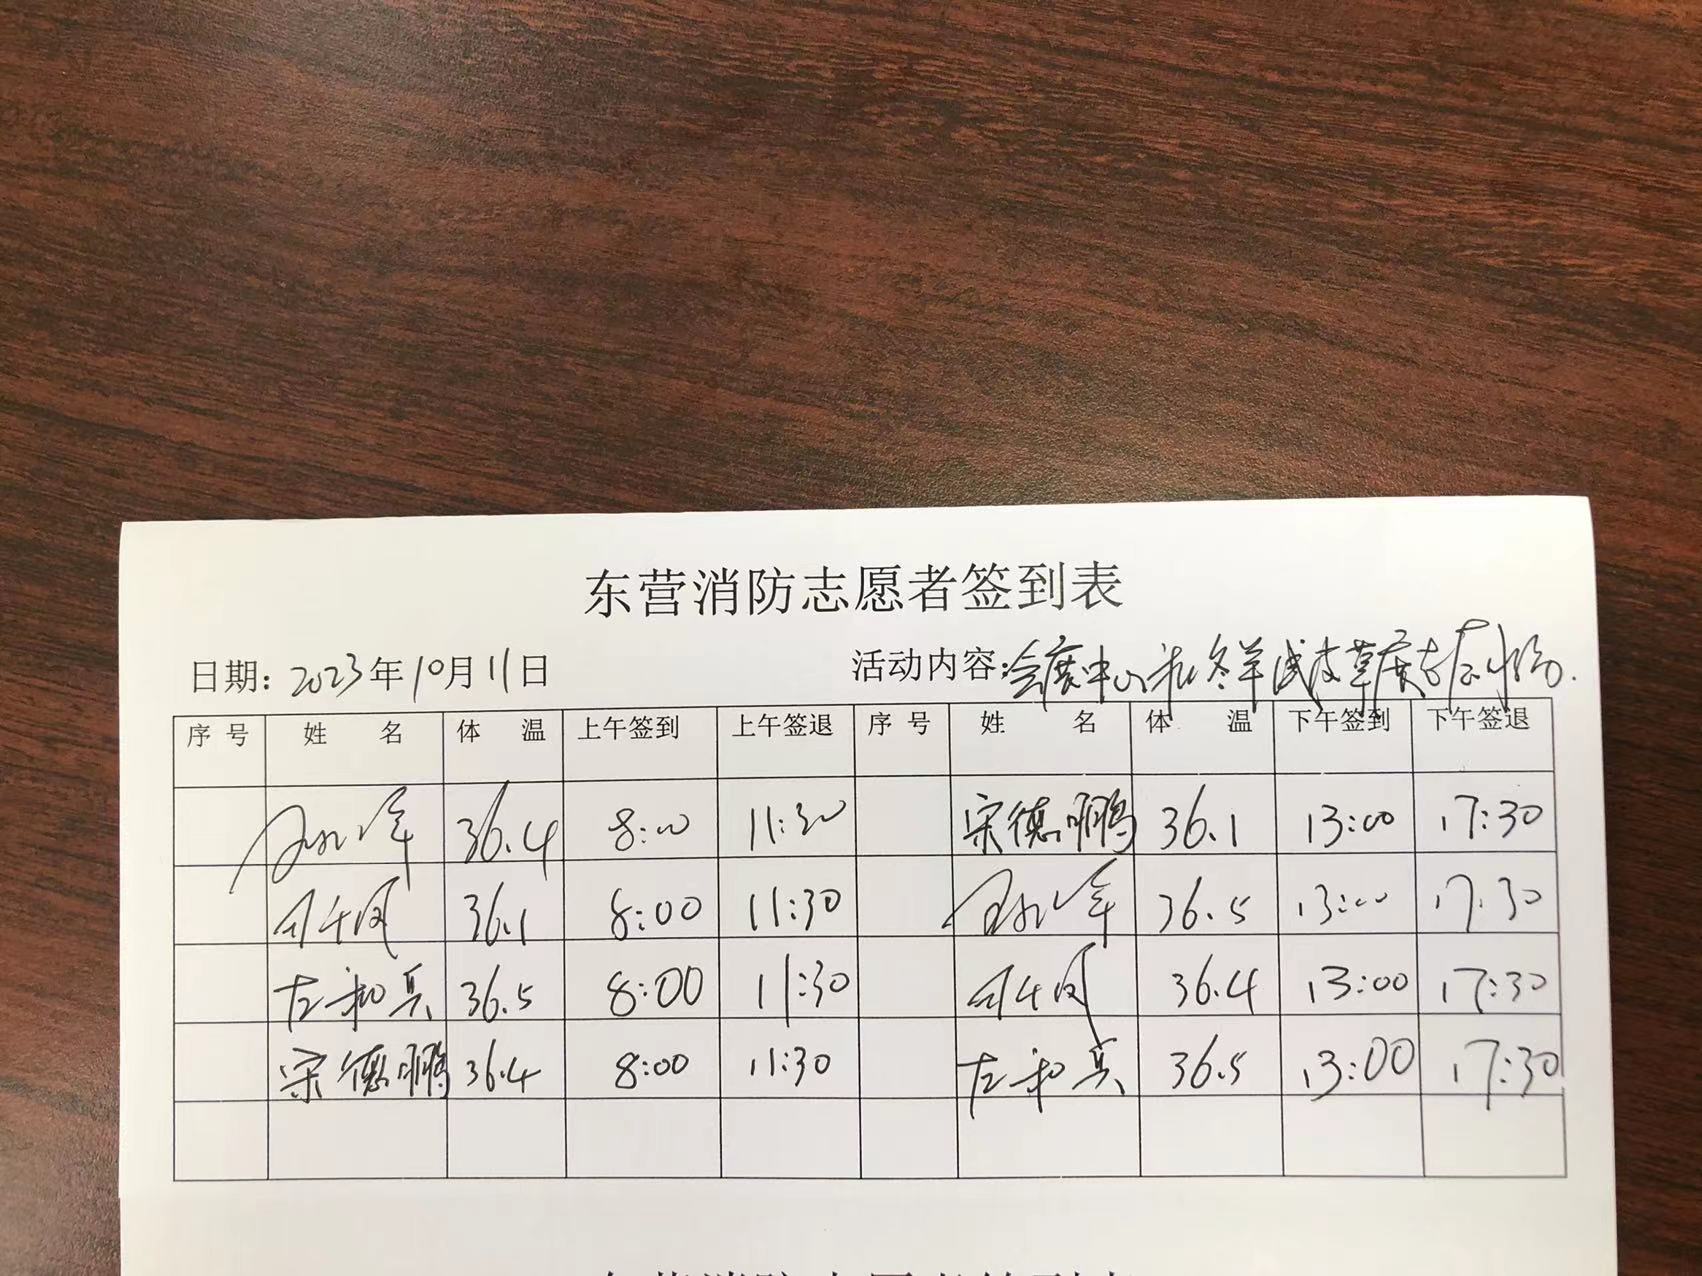 东营消防志愿者签到表
日期: 2023年10月11日 活动内容: 会展中心秋冬羊绒皮草展
序号 姓名 体温 上午签到 上午签退 序号 姓名 体温 下午签到 下午签退
36.4 8:00 11:30 宋德鹏 36.1 13:00 17:30
36.1 8:00 11:30 36.5 13:00 17:30
左和真 36.5 8:00 11:30 36.4 13:00 17:30
宋德鹏 36.4 8:00 11:30 左和真 36.5 13:00 17:30